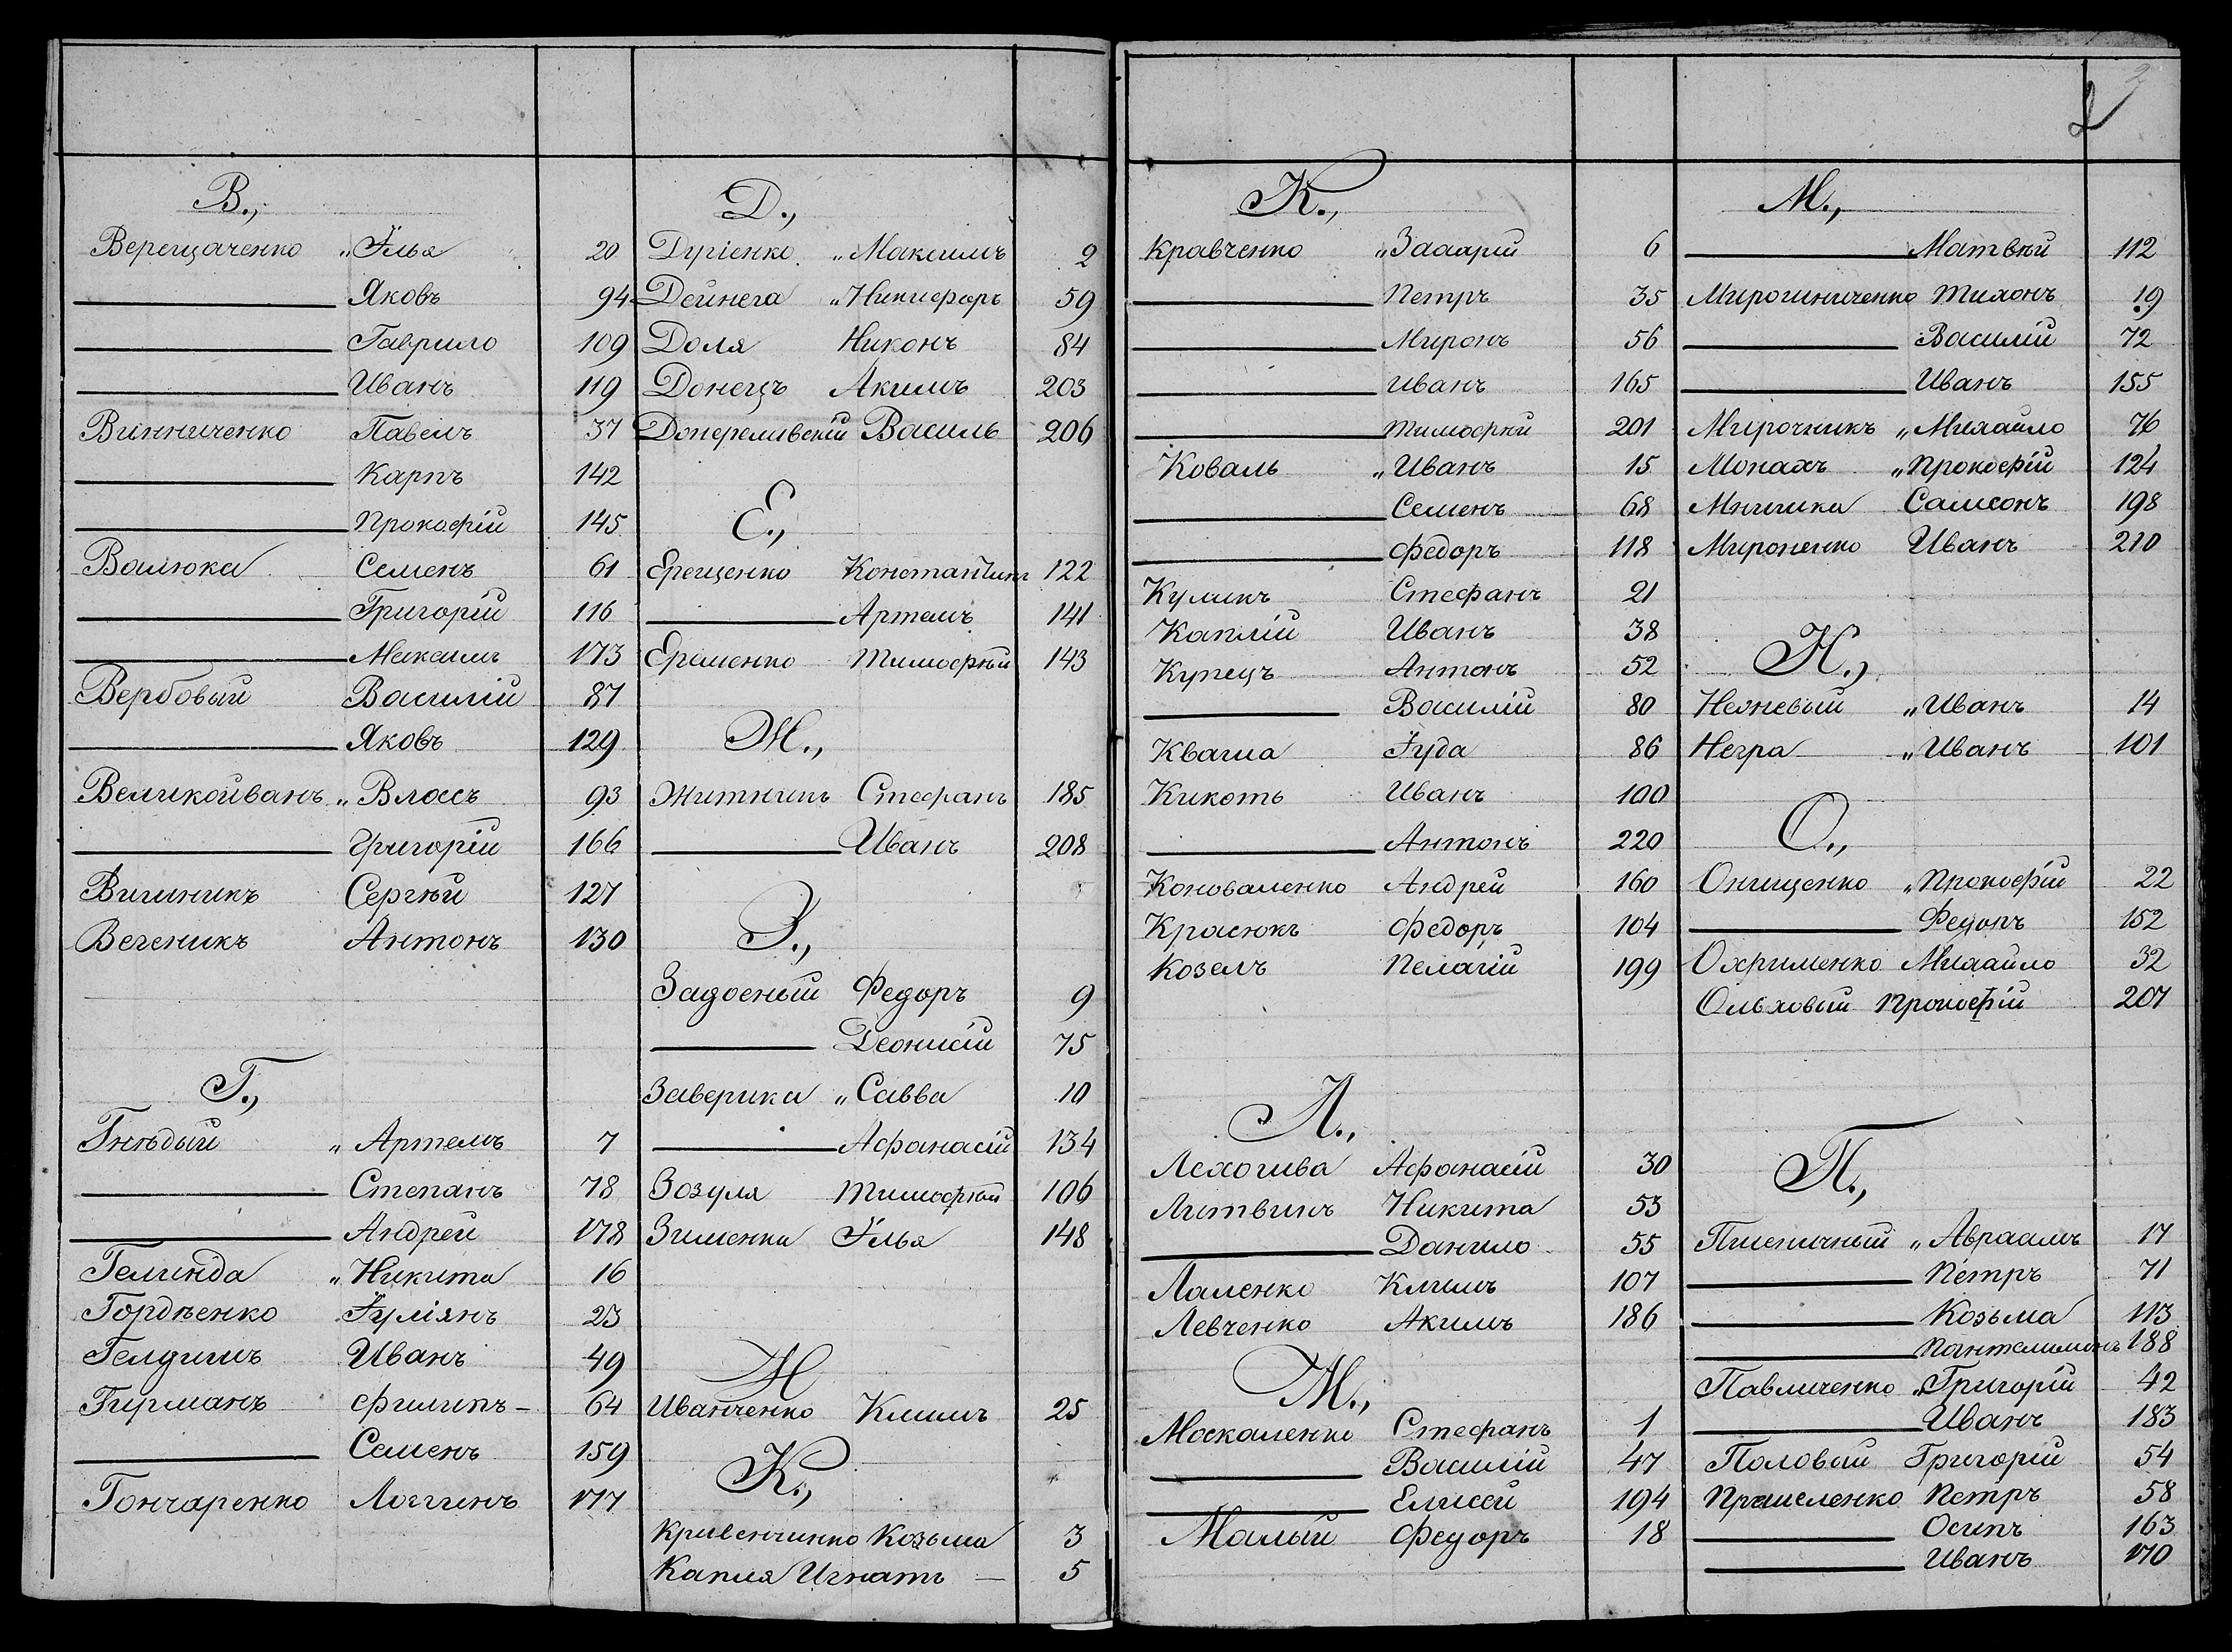 В.,
Верещаченко „ Илья 20
Яковъ 94
Гаврило 109
Иванъ 119
Винниченко Павелъ 37
Карпъ 142
Прокофій 145
Валюка Семенъ 61
Григорій 116
Максимъ 173
Вербовый Василій 87
Яковъ 129
Великойванъ „ Власъ 93
Григорій 166
Вишникъ Сергѣй 127
Вегеникъ Антонъ 130
Г.,
Гнѣдый „ Артемъ 7
Степанъ 78
Андрей 178
Гелинда „ Никита 16
Гордѣенко Іуліянъ 23
Иванъ 49
Гирманъ Филипъ – 64
Семенъ 159
Гончаренко Логгинъ 177
Д.,
Дугіенко „ Максимъ 2
Дейнега „ Никифоръ 59
Доля Никонъ 84
Донецъ Акимъ 203
Василь 206
Е.,
Ерещенко Константинъ 122
Артемъ 141
Еременко Тимофѣй 143
Ж.,
Житникъ Стефанъ 185
Иванъ 208
З.,
Задоеный Федоръ 9
Деонисій 75
Заверика „ Савва 10
Афанасій 134
Зозуля Тимофѣй 106
Зименка Илья 148
И
Иванченко Климъ 25
К.,
Козьма 3
Капля Игнатъ — 5
2
2
К.,
Кравченко „ Захарій 6
Петръ 35
Миронъ 56
Иванъ 165
Тимофей 201
Коваль „ Иванъ 15
Семенъ 68
Федоръ 118
Куликъ Стефанъ 21
Каплій Иванъ 38
Купецъ Антонъ 52
Василій 80
Кваша Іуда 86
Кикоть Иванъ 100
Антонъ 220
Коноваленко Андрей 160
Красюкъ Федоръ 104
Козелъ Пелагій 199
Л.,
Лехошва Афанасій 30
Литвинъ Никита 53
Данило 55
Лаленко Климъ 107
Левченко Акимъ 186
М.,
Москаленко Стефанъ 1
Василій 47
Елисей 194
Малый Федоръ 18
М.,
Матвѣй 112
Мирошниченко Тихонъ 19
Василій 72
Иванъ 155
Мирочникъ „ Михайло 76
Монахъ „ Прокофій 124
Самсонъ 198
Мироненко Иванъ 210
Н.,
„ Иванъ 14
Негра „ Иванъ 101
О.,
Онищенко „ Прокофій 22
152
Охрименко Михайло 32
Ольховый Прокофій 207
П.,
Пшеничный „ Авраамъ 17
Петръ 71
Козьма 113
Пантелимонъ 188
Павличенко „ Григорій 42
Иванъ 183
Половый Григорій 54
Петръ 58
Осипъ 163
Иванъ 170